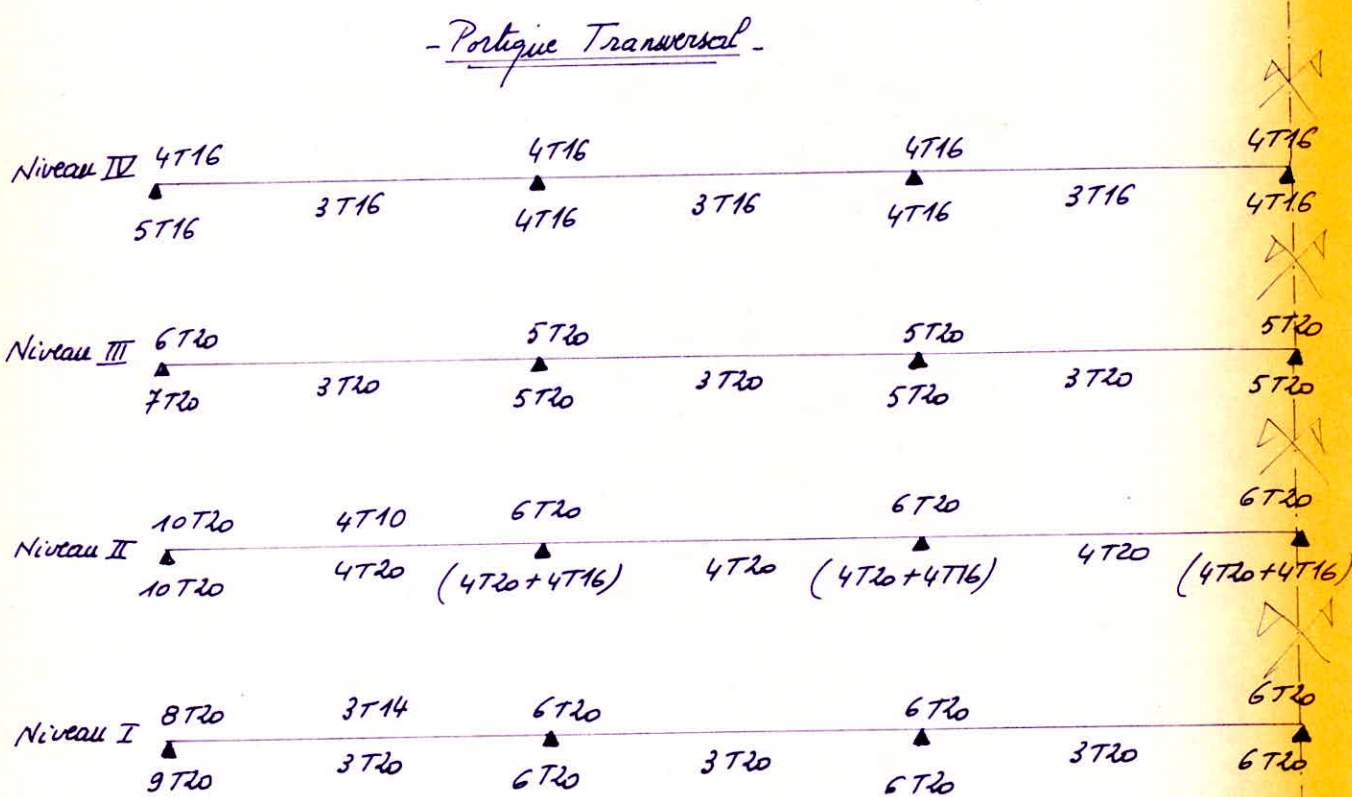 - Portique Transversal -
Niveau IV 4T16 4T16 4T16 4T16
3T16 3T16 3T16
5T16 4T16 4T16 4T16
Niveau III 6T20 5T20 5T20 5T20
3T20 3T20 3T20
7T20 5T20 5T20 5T20
Niveau II 10T20 4T10 6T20 6T20 6T20
10T20 4T20 (4T20+4T16) 4T20 (4T20+4T16) 4T20 (4T20+4T16)
Niveau I 8T20 3T14 6T20 6T20 6T20
9T20 3T20 6T20 3T20 6T20 3T20 6T20